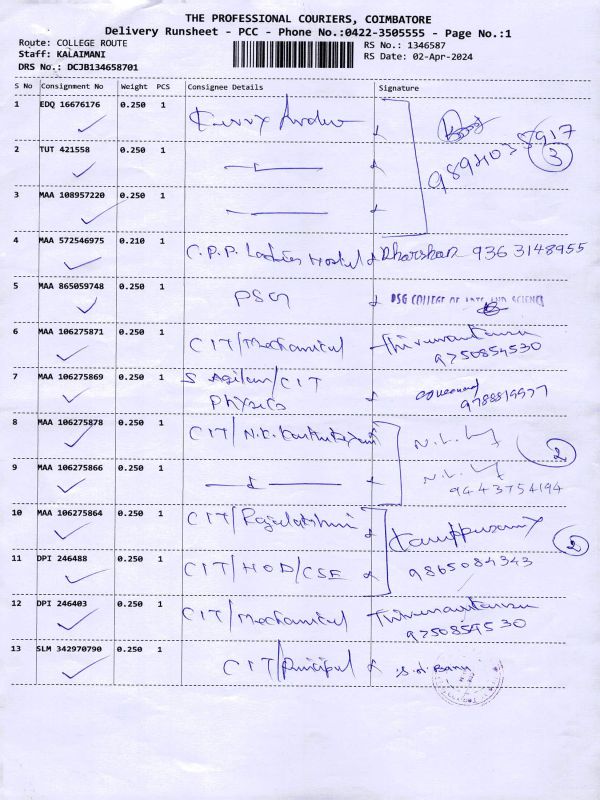 THE PROFESSIONAL COURIERS, COIMBATORE
Delivery Runsheet - PCC - Phone No.:0422-3505555 - Page No.:1
Route: COLLEGE ROUTE RS No.: 1346587
Staff: KALAIMANI RS Date: 02-Apr-2024
DRS No.: DCJB134658701
S No Consignment No Weight PCS Consignee Details Signature
1 EDQ 16676176 0.250 1
2 TUT 421558 0.250 1 3
3 MAA 108957220 0.250 1
4 MAA 572546975 0.210 1 C.P.P. Ladies Hostel Dharshan 936 3148955
5 MAA 865059748 0.250 1 PSG PSG COLLEGE OF ARTS AND SCIENCE
6 MAA 106275871 0.250 1 CIT/Mechanical
9750854530
7 MAA 106275869 0.250 1 S Agilan/CIT
Physics 9788819577
8 MAA 106275878 0.250 1 CIT/N.K. 2
9 MAA 106275866 0.250 1
9443754194
10 MAA 106275864 0.250 1 CIT/Rajalakshmi Karuppusamy 2
11 DPI 246488 0.250 1 CIT/HOD/CSE 9865084343
12 DPI 246403 0.250 1 CIT/Mechanical
9750854530
13 SLM 342970790 0.250 1 CIT/Principal Banu